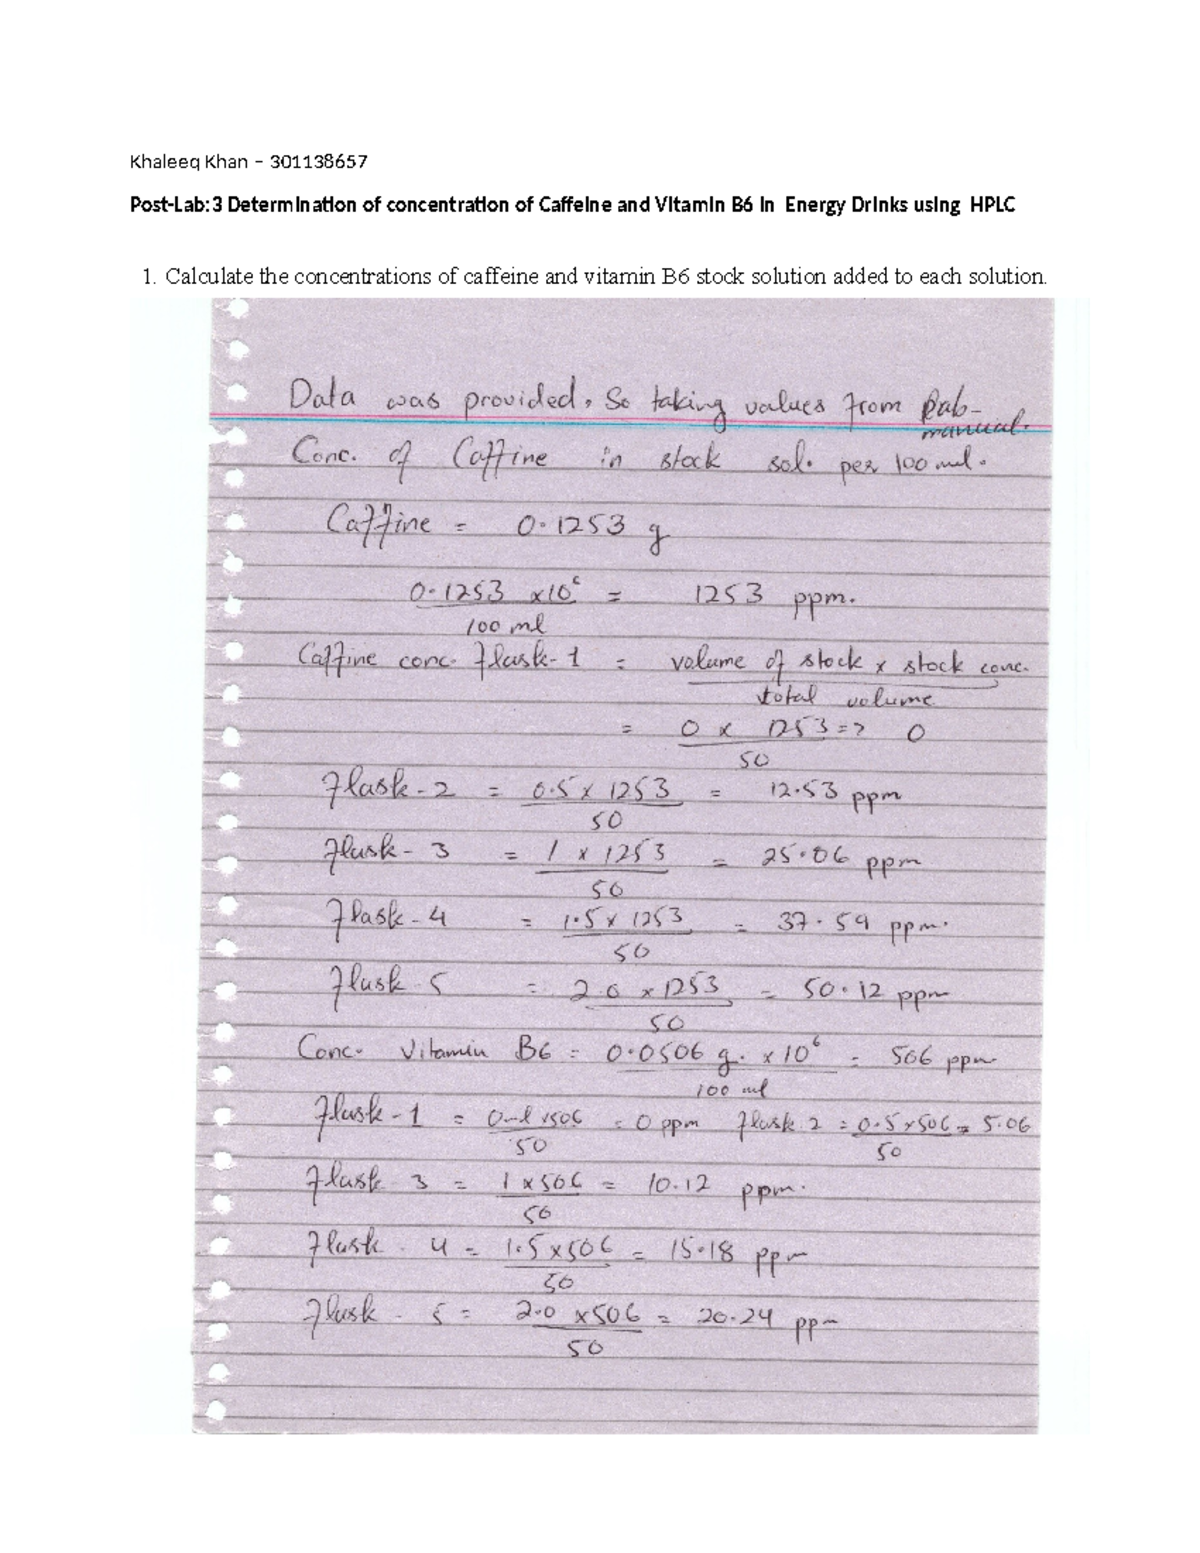 Khaleeq Khan – 301138657
Post-Lab:3 Determination of concentration of Caffeine and Vitamin B6 in Energy Drinks using HPLC
1. Calculate the concentrations of caffeine and vitamin B6 stock solution added to each solution.
Data was provided. So taking values from Lab-
manual.
Conc. of Caffine in stock sol. per 100 ml.
Caffine = 0.1253 g
0.1253 x10⁶ = 1253 ppm.
100 ml
Caffine conc. Flask-1 = volume of stock x stock conc.
total volume
= 0 x 1253 => 0
50
Flask-2 = 0.5 x 1253 = 12.53 ppm
50
Flask-3 = 1 x 1253 = 25.06 ppm
50
Flask-4 = 1.5 x 1253 = 37.59 ppm.
50
Flask-5 = 2.0 x 1253 = 50.12 ppm
50
Conc. Vitamin B6 = 0.0506 g. x 10⁶ = 506 ppm
100 ml
Flask-1 = x506 = 0 ppm Flask 2 = 0.5 x 506 = 5.06
50 50
Flask 3 = 1 x 506 = 10.12 ppm.
50
Flask - 4 = 1.5 x 506 = 15.18 ppm
50
Flask - 5 = 2.0 x 506 = 20.24 ppm
50